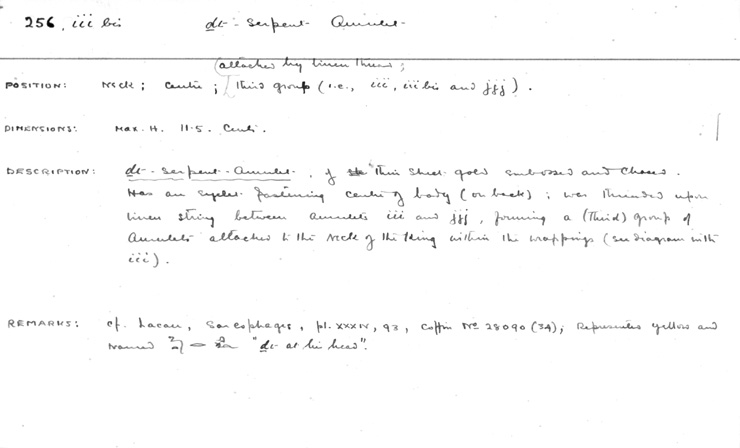 256, iii bis dt-Serpent Amulet.
(attached by linen thread;
POSITION: Neck; Centre; Third group (i.e., iii, iii bis and jjj).
DIMENSIONS: Max. H. 11.5. Cents.
DESCRIPTION: dt-Serpent-Amulet, of Thin Sheet-gold embossed and Chased.
Has an eyelet fastening centre of body (on back); was threaded upon
linen string between amulets iii and jjj, forming a (Third) group of
Amulets attached to the Neck of the King within the wrappings (see diagram with
iii).
REMARKS: cf. Lacau, Sarcophages, pl. XXXIV, 93, Coffin No 28090 (34); Represented yellow and
named "dt at his head".